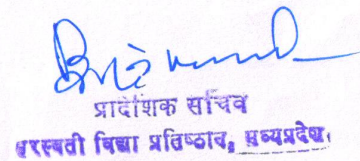 प्रादेशिक सचिव
सरस्वती विद्या प्रतिष्ठान, मध्यप्रदेश.